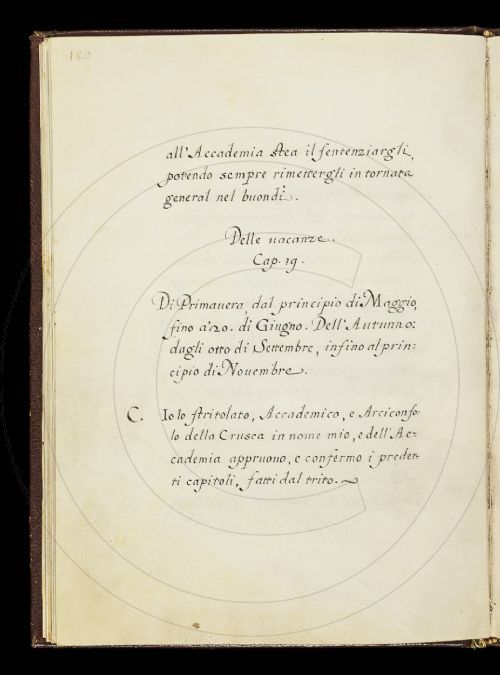 160
all'Accademia stea il sentenziargli,
potendo sempre rimettergli in tornata
general nel buondì.
Delle uacanze.
Cap. 19.
Di Primauera, dal principio di Maggio,
fino a' 20. di Giugno. Dell'Autunno:
dagli otto di Settembre, infino al prin:
cipio di Nouembre.
C. Io lo stritolato, Accademico, e Arciconso:
lo della Crusca in nome mio, e dell'Ac:
cademia appruouo, e confermo i predet:
ti capitoli, fatti dal trito.